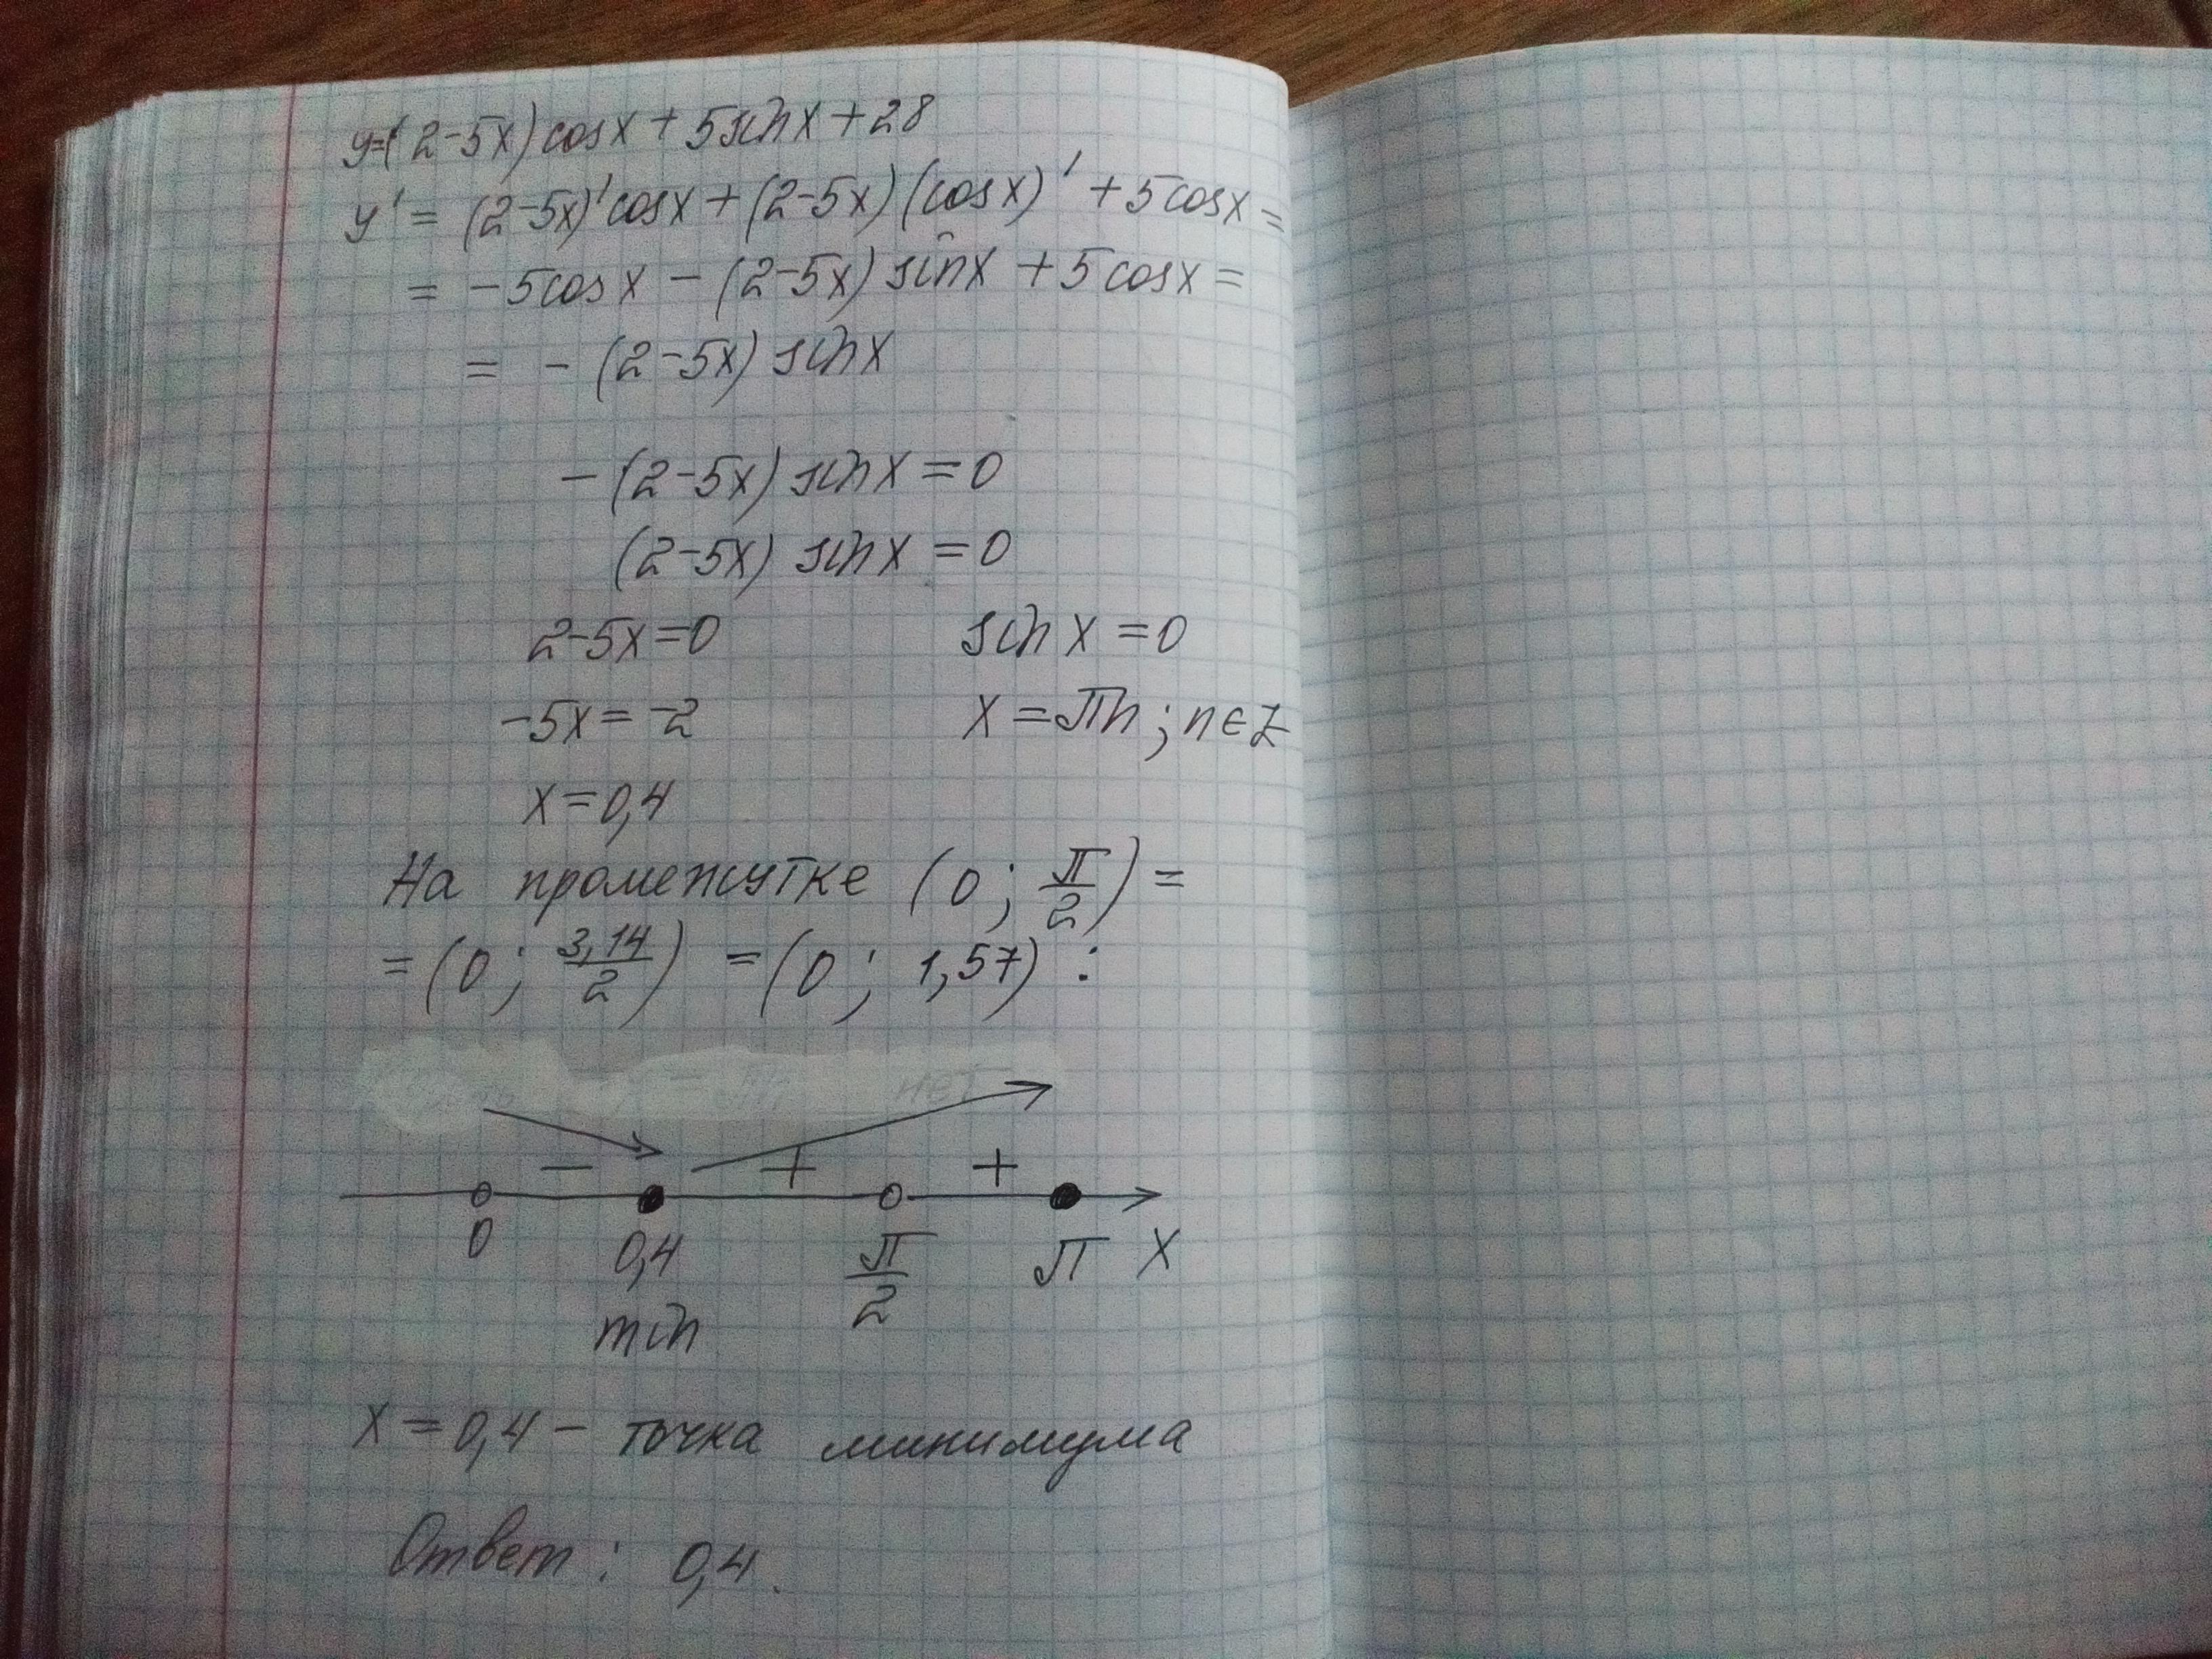 y=(2-5x)cosx+5sinx+28
y'=(2-5x)'cosx+(2-5x)(cosx)'+5cosx=
=-5cosx-(2-5x)sinx+5cosx=
=-(2-5x)sinx
-(2-5x)sinx=0
(2-5x)sinx=0
2-5x=0 sinx=0
-5x=-2 x=πn; n∈Z
x=0,4
На промежутке (0; π/2)=
=(0; 3,14/2)=(0; 1,57):
нет
- + +
0 0,4 π/2 π x
min
x=0,4 - точка минимума
Ответ: 0,4.